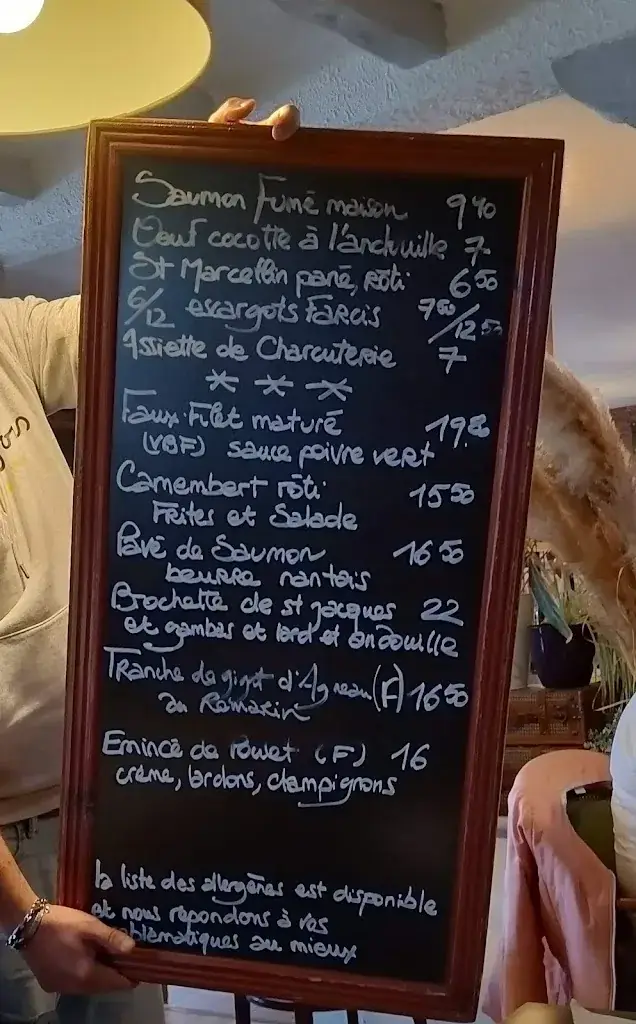 Saumon Fumé maison 9 40
Oeuf cocotte à l'andouille 7-
St Marcellin pané, rôti 6 50
6/12 escargots Farcis 7 60/12 50
Assiette de Charcuterie 7
* * *
Faux-Filet maturé 19,8
(VBF) sauce poivre vert
Camembert rôti 15 50
Frites et Salade
Pavé de Saumon 16 50
beurre nantais
Brochette de st jacques 22
et gambas et lard et andouille
Tranche de gigot d'Agneau (F) 16 50
au Romarin
Emincé de Poulet (F) 16
crème, lardons, champignons
la liste des allergènes est disponible
et nous répondons à vos
problématiques au mieux